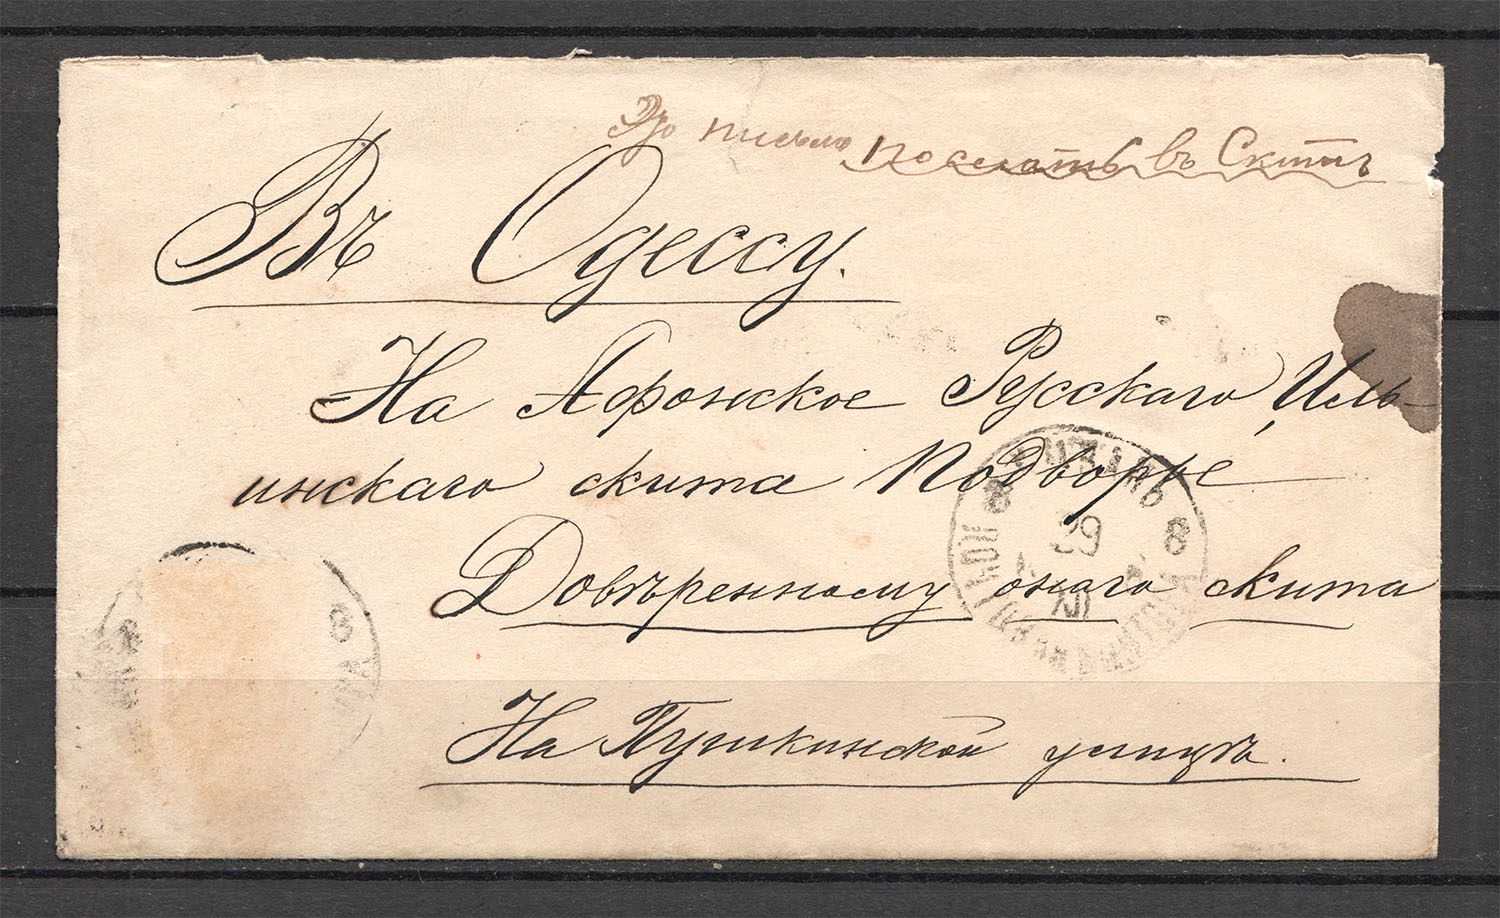 Это письмо послать въ Скитъ
Въ Одессу.
На Афонское Русскаго Иль-
инскаго скита Подворье
Довѣренному онаго скита
На Пушкинской улицѣ.
8 8
29